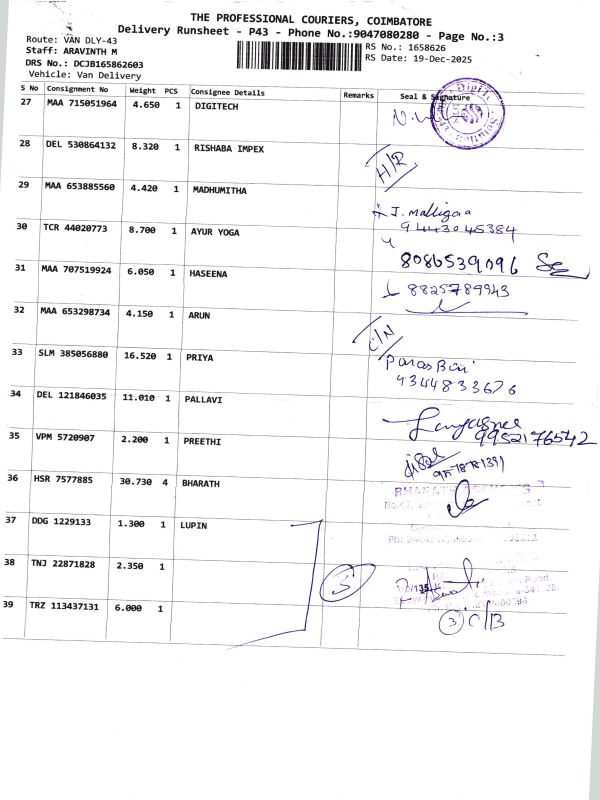 THE PROFESSIONAL COURIERS, COIMBATORE
Delivery Runsheet - P43 - Phone No.:9047080280 - Page No.:3
Route: VAN DLY-43
RS No.: 1658626
Staff: ARAVINTH M
RS Date: 19-Dec-2025
DRS No.: DCJB165862603
Vehicle: Van Delivery
S No Consignment No Weight PCS Consignee Details Remarks Seal & Signature
27 MAA 715051964 4.650 1 DIGITECH
28 DEL 530864132 8.320 1 RISHABA IMPEX H/R
29 MAA 653885560 4.420 1 MADHUMITHA J. malligaa
9443045384
30 TCR 44020773 8.700 1 AYUR YOGA
8086539096
31 MAA 707519924 6.050 1 HASEENA 8825789943
32 MAA 653298734 4.150 1 ARUN C/N
33 SLM 385056880 16.520 1 PRIYA
9344833676
34 DEL 121846035 11.010 1 PALLAVI
9952176542
35 VPM 5720907 2.200 1 PREETHI
36 HSR 7577885 30.730 4 BHARATH
37 DDG 1229133 1.300 1 LUPIN
38 TNJ 22871828 2.350 1
39 TRZ 113437131 6.000 1
3 C/B